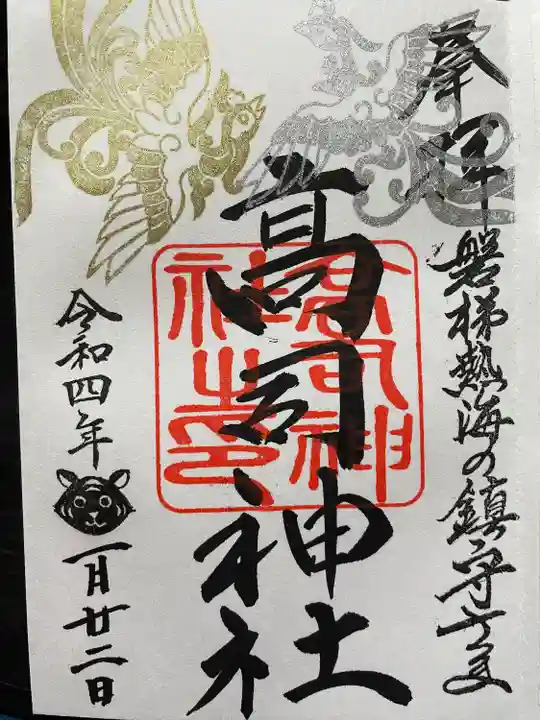 奉拝
磐梯熱海の鎮守さま
高司神社
高司神社之印
令和四年
一月廿二日